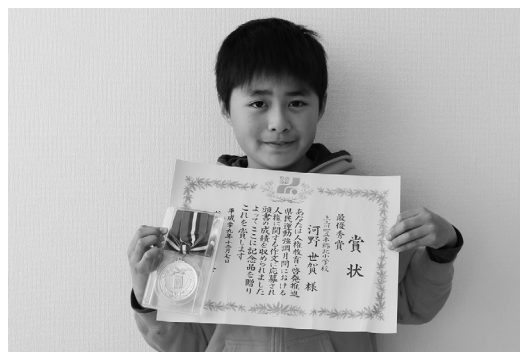 賞状
最優秀賞
河野世賀 様
あなたは人権教育・啓発推進
県民運動強調月間における
人権に関する作文に応募され
頭書の成績を収められました
よってここに記念品を贈り
これを賞します
平成二十九年十二月七日